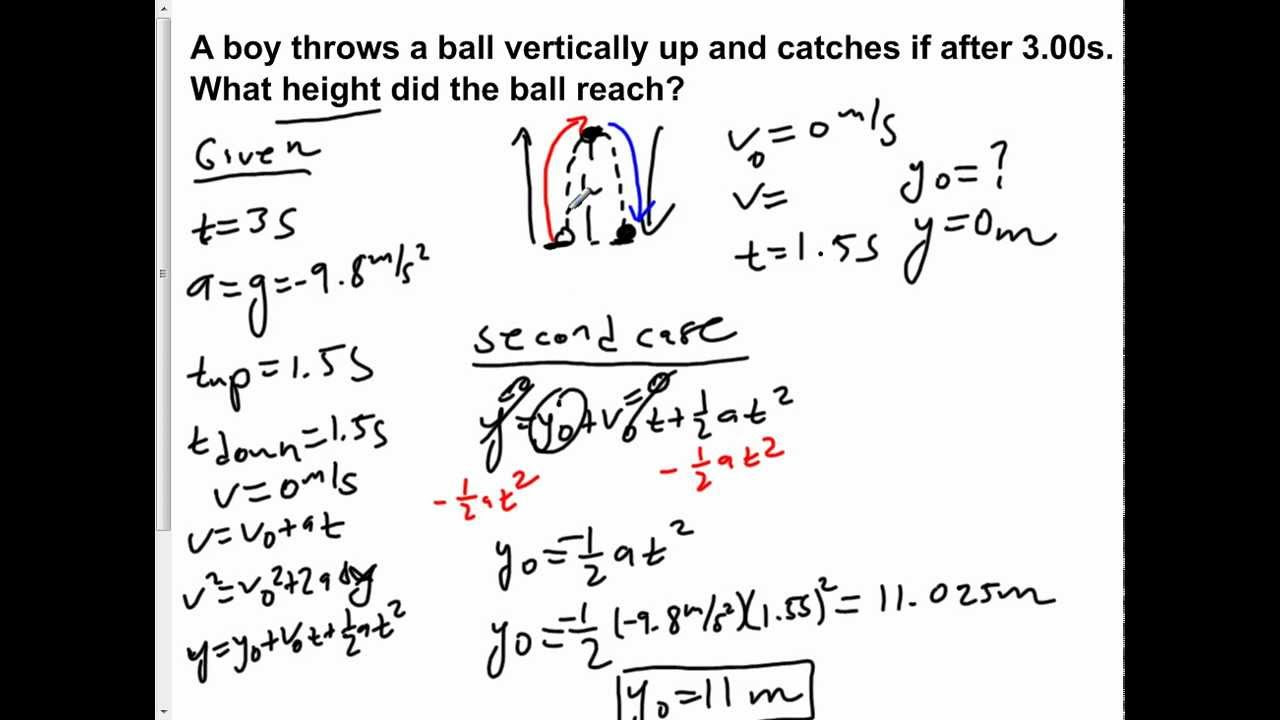 A boy throws a ball vertically up and catches if after 3.00s.
What height did the ball reach?
Given
t=3s
a=g=-9.8m/s²
tup=1.5s
tdown=1.5s
v=0m/s
v=v₀+at
v²=v₀²+2ady
y=y₀+v₀t+½at²
v₀=0m/s
v=
t=1.5s
y₀=?
y=0m
second case
y=y₀+v₀t+½at²
=0
-½at² -½at²
y₀=-½at²
y₀=-½(-9.8m/s²)(1.5s)²=11.025m
y₀=11m